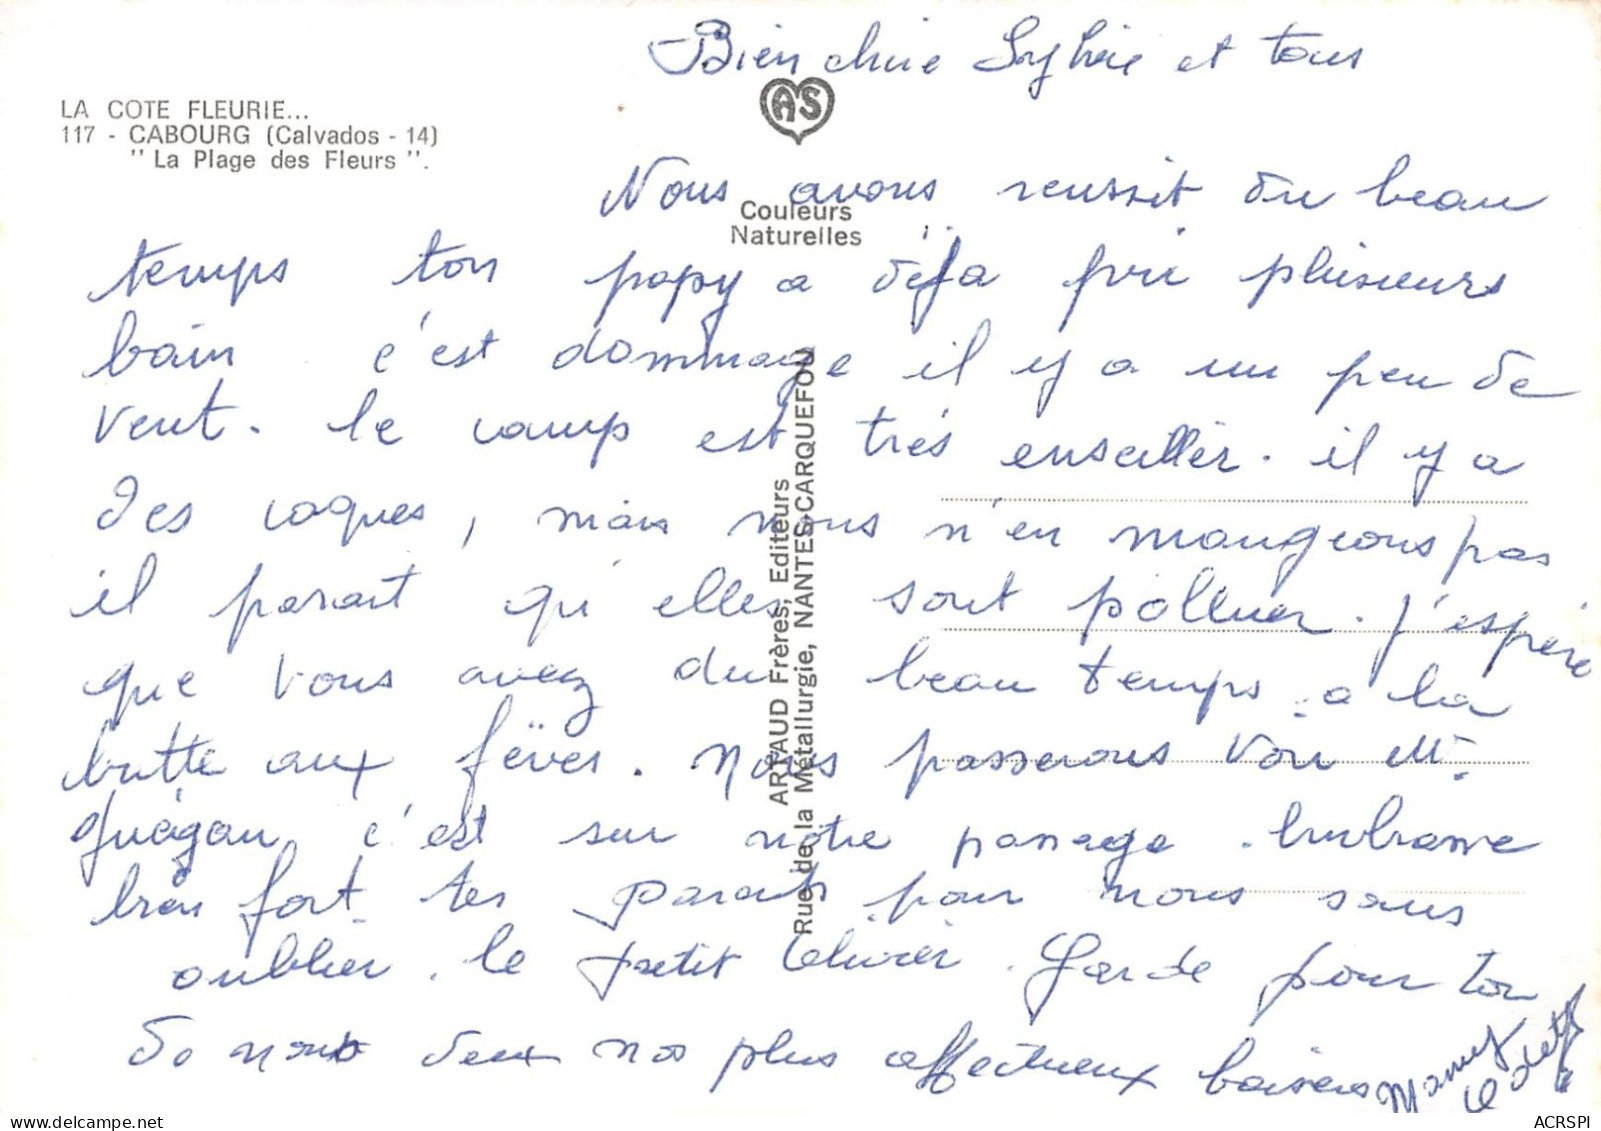 Bien chère Sylvie et tous
LA COTE FLEURIE...
117 - CABOURG (Calvados - 14)
" La Plage des Fleurs ".
AS
Couleurs
Naturelles
ARTAUD Frères, Editeurs
Rue de la Métallurgie, NANTES-CARQUEFOU
Nous avons reussit du beau
temps ton papy a déja pris plusieurs
bain c'est dommage il y a un peu de
vent. le camp est très enseiller. il y a
des coques, mais nous n'en mangeons pas
il parait qu'elles sont polluer. j'espère
que vous avez du beau temps a la
butte aux fèves. Nous passerons voir Mr
c'est sur notre passage. Embrasse
bien fort tes parents pour nous sans
oublier le petit Olivier. Garde pour toi
de nous deux nos plus affectueux baisers
Mamy